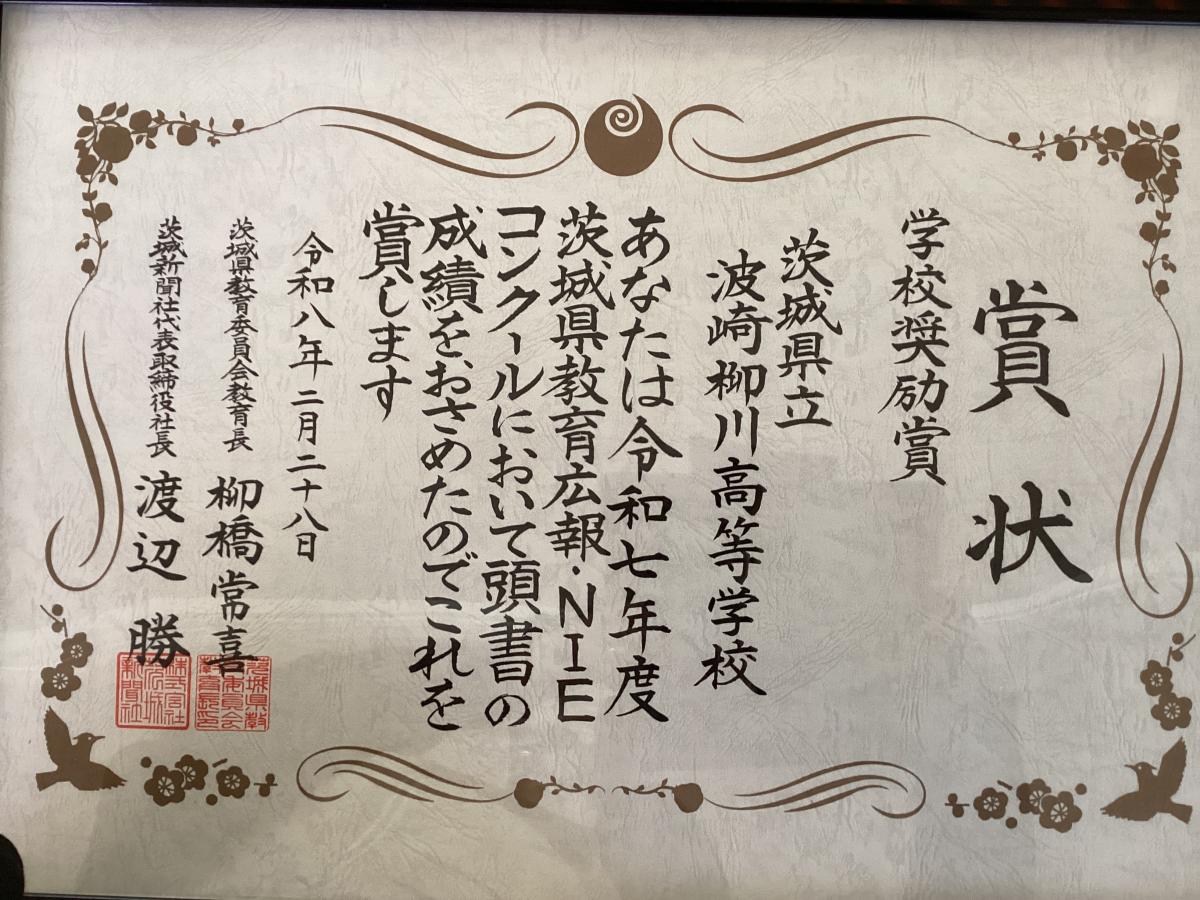 賞状
学校奨励賞
茨城県立
波崎柳川高等学校
あなたは令和七年度
茨城県教育広報・NIE
コンクールにおいて頭書の
成績をおさめたのでこれを
賞します
令和八年二月二十八日
茨城県教育委員会教育長 柳橋常喜
茨城新聞社代表取締役社長 渡辺勝